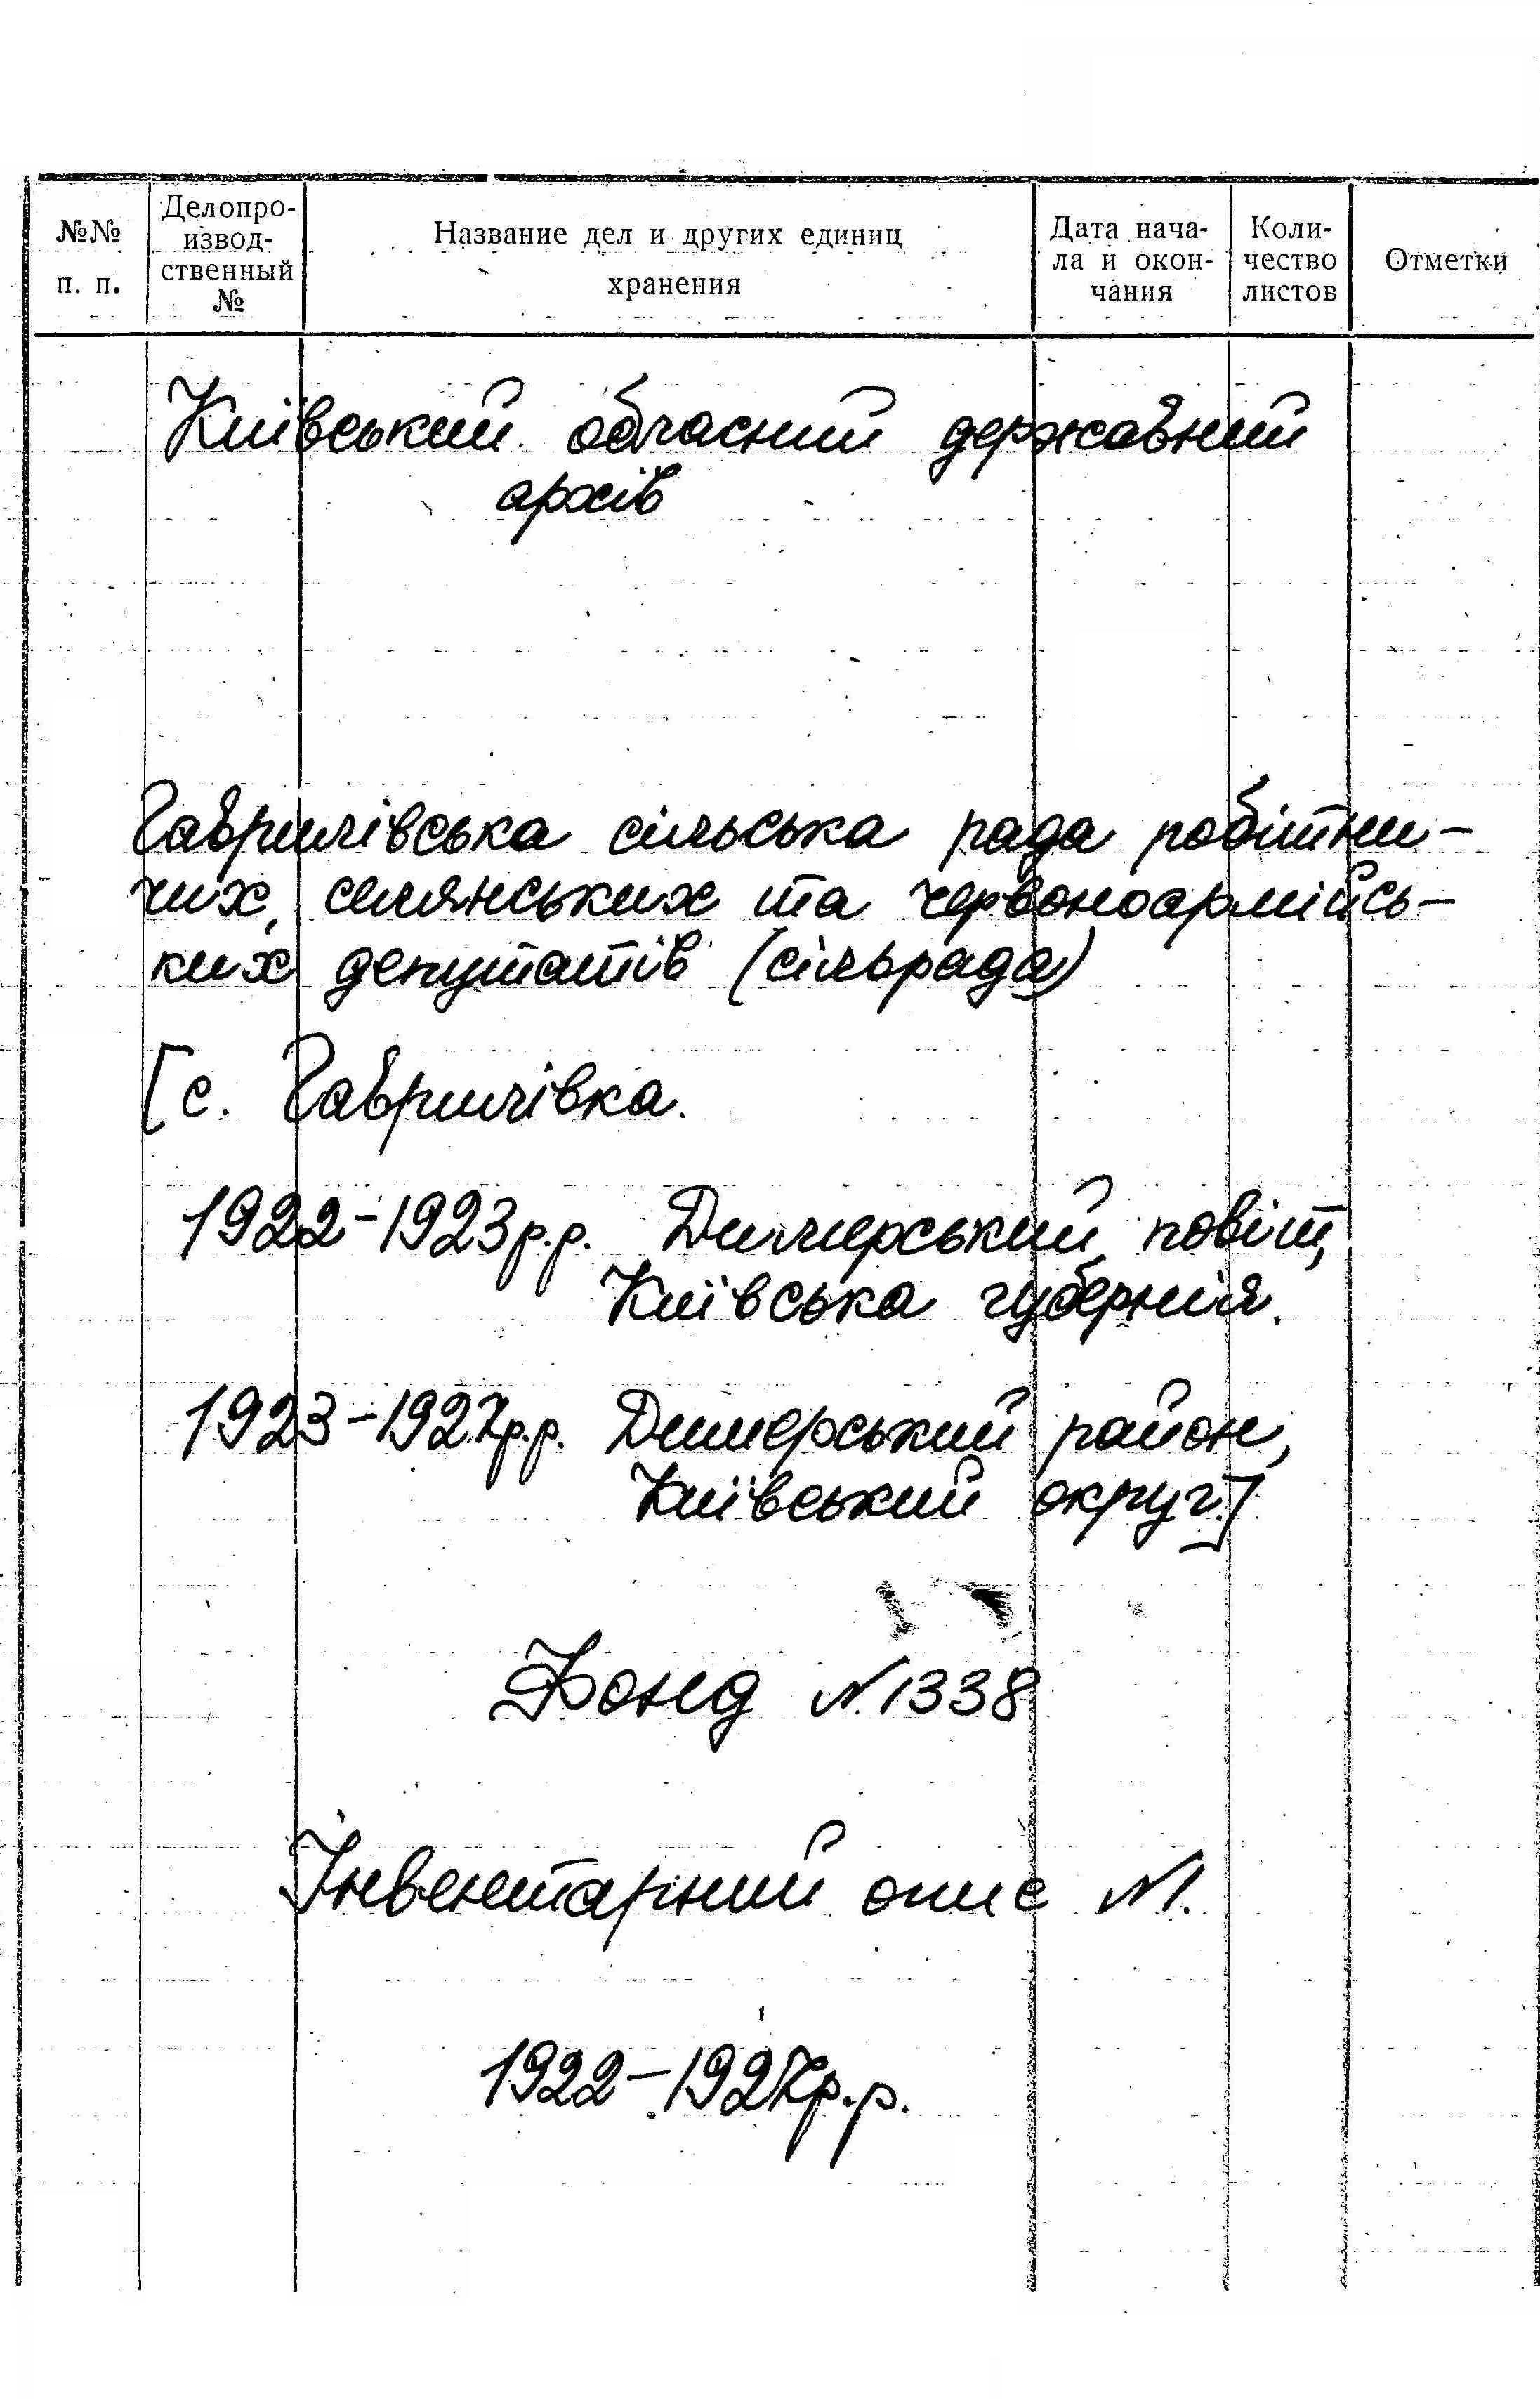 №№ п. п.
Делопро-
извод-
ственный
№
Название дел и других единиц
хранения
Дата нача-
ла и окон-
чания
Коли-
чество
листов
Отметки
Київський обласний державний
архів
Гаврилівська сільська рада робітни-
чих, селянських та червоноармійсь-
ких депутатів (сільрада)
[с. Гаврилівка.
1922-1923р.р. Димерський повіт,
Київська губернія.
1923-1927р.р. Димерський район,
Київський округ.]
Фонд N.1338
Інвентарний опис N1.
1922-1927р.р.